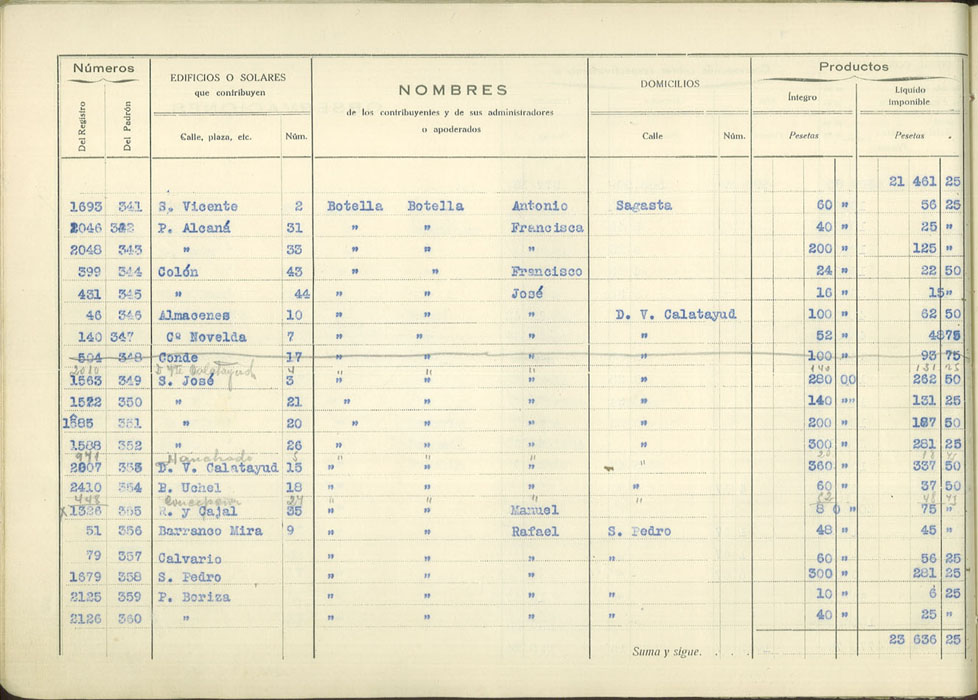 Números EDIFICIOS O SOLARES que contribuyen NOMBRES de los contribuyentes y de sus administradores o apoderados DOMICILIOS Productos
Del Registro Del Padrón Calle, plaza, etc. Núm. Calle Núm. Íntegro Pesetas Líquido imponible Pesetas
21 461 25
1693 341 S. Vicente 2 Botella Botella Antonio Sagasta 60 " 56 25
2046 342 P. Alcaná 31 " " Francisca 40 " 25 "
2048 343 " 33 " " " 200 " 125 "
399 344 Colón 43 " " Francisco 24 " 22 50
431 345 " 44 " " José 16 " 15 "
46 346 Almacenes 10 " " " D. V. Calatayud 100 " 62 50
140 347 Cª Novelda 7 " " " " 52 " 48 75
504 348 Conde 17 " " " " 100 " 93 75
2010 Calatayud 4 " " 140 131 25
1563 349 S. José 3 " " " " 280 00 262 50
1522 350 " 21 " " " " 140 "" 131 25
1585 351 " 20 " " " " 200 " 187 50
1588 352 " 26 " " " " 300 " 281 25
971 5 " " " "
2007 353 D. V. Calatayud 15 " " " 360 " 337 50
2410 354 B. Uchel 18 " " " " 60 " 37 50
448 Concepción " " " "
1326 355 R. y Cajal 35 " " Manuel 8 0 " 75 "
51 356 Barranco Mira 9 " " Rafael S. Pedro 48 " 45 "
79 357 Calvario " " " " 60 " 56 25
1679 358 S. Pedro " " " 300 " 281 25
2125 359 P. Boriza " " " " 10 " 6 25
2126 360 " " " " " 40 " 25 "
23 636 25
Suma y sigue. . . . .